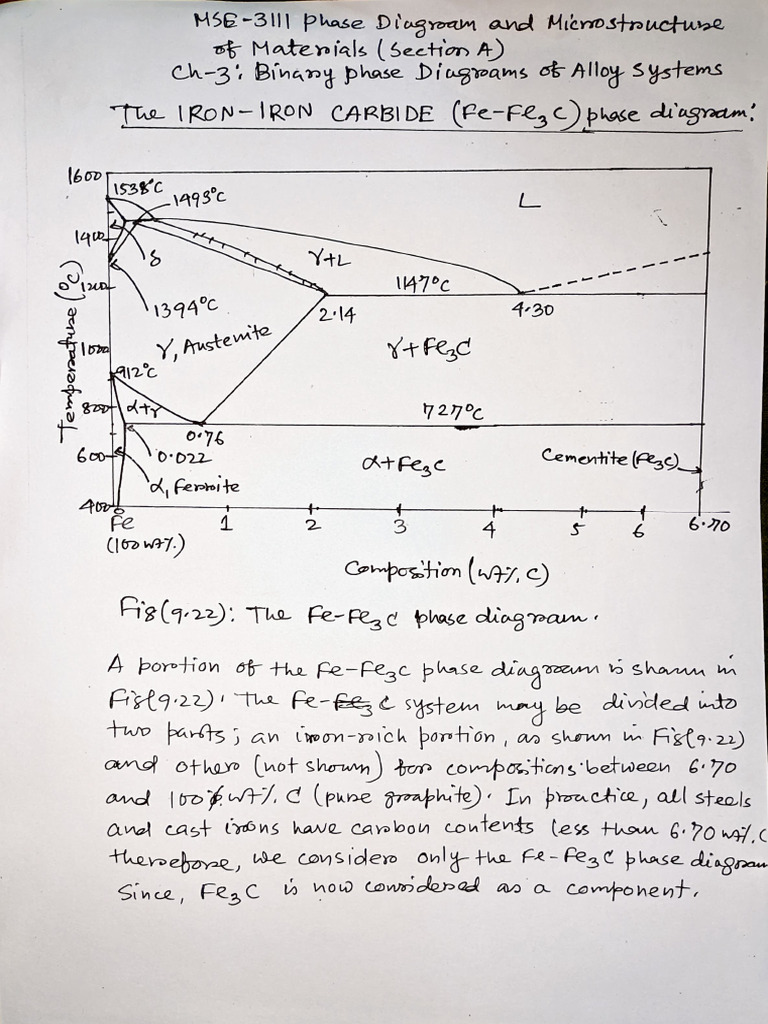 MSE-3111 Phase Diagram and Microstructure
of Materials (Section A)
Ch-3: Binary phase Diagrams of Alloy Systems
The IRON-IRON CARBIDE (Fe-Fe3C) phase diagram:
1600
1538°C
1493°C
L
1400
δ
γ+L
1200
1147°C
1394°C
2.14
4.30
Temperature (°C)
γ, Austenite
1000
γ+Fe3C
912°C
800
α+γ
727°C
0.76
600
0.022
α+Fe3C
Cementite (Fe3C)
α, Ferrite
400
0
Fe
1
2
3
4
5
6
6.70
(100 wt%)
Composition (wt%, C)
Fig(9.22): The Fe-Fe3C phase diagram.
A portion of the Fe-Fe3C phase diagram is shown in
Fig(9.22). The Fe-C system may be divided into
two parts; an iron-rich portion, as shown in Fig(9.22)
and other (not shown) for compositions between 6.70
and 100 wt%. C (pure graphite). In practice, all steels
and cast irons have carbon contents less than 6.70 wt%. C
therefore, we consider only the Fe-Fe3C phase diagram
Since, Fe3C is now considered as a component.